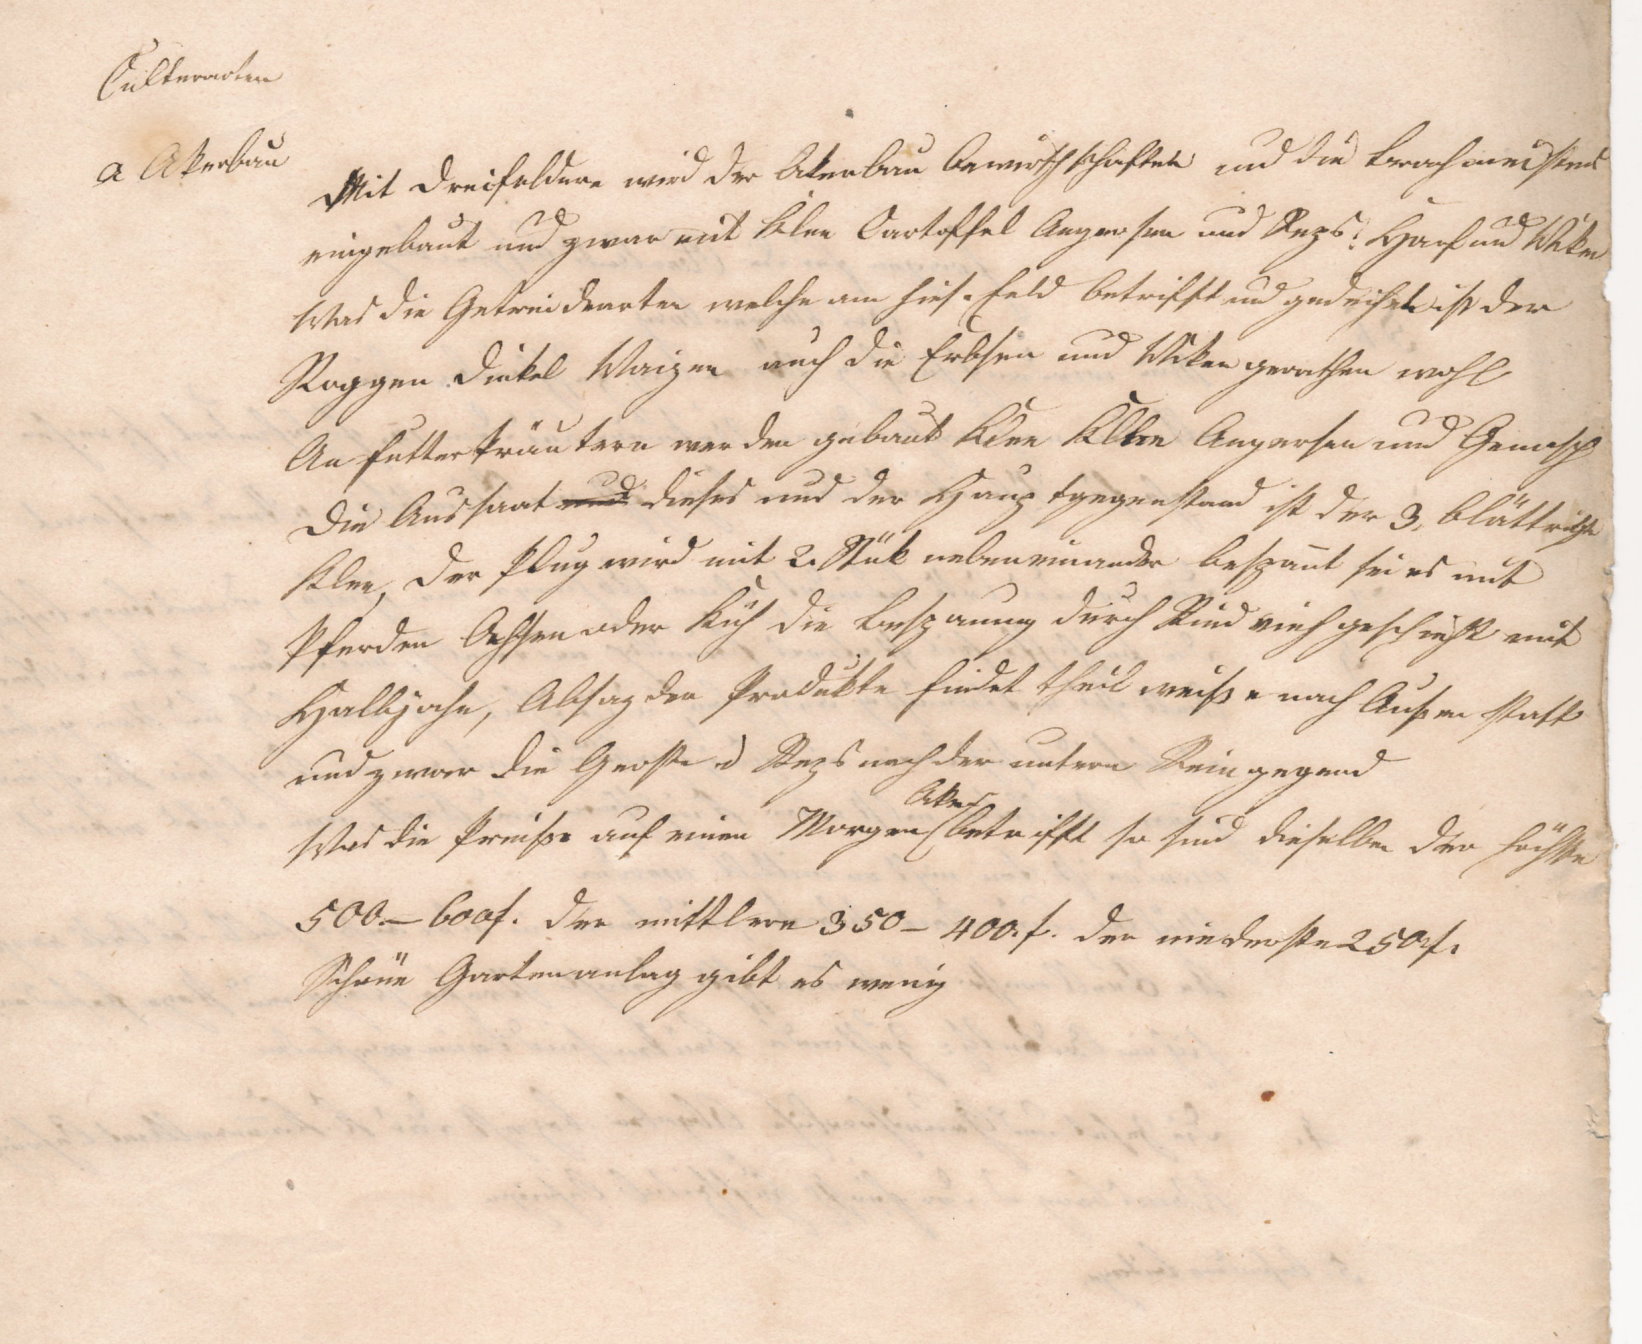 Culturarten
a Akerbau
Mit Dreifeldern wird der Akerbau bewirthschaftet und die Brach meistens
eingebaut und zwar mit Klee Cartoffel Angersen und Reps. Hanf und Wiken
Was die Getreidearten welche am hies. Feld betrifft und gedeihen ist der
Roggen Dinkel Waizen auch die Erbsen und Wiken gerathen wohl
An Futterkräutern werden gebaut Klee Angersen und Gemisch
Die Aussaat und dieses und der Hauptgegenstand ist der 3. blättrigte
Klee, Der Pflug wird mit 2. Stük nebeneinander bespannt sei es mit
Pferden Ochsen oder Küh die Bespannung durch Rindvieh geschieht mit
Halbjoche, Absaz der Produkte findet theilweiße nach Außen statt
und zwar die Gerste u Reps nach der untern Reingegend
Was die Preiße auf einen Morgen Aker betrifft so sind dieselben der höchste
500.– 600f. der mittlere 350– 400.f. der niederste 250f.
Schöne Gartenanlag gibt es wenig